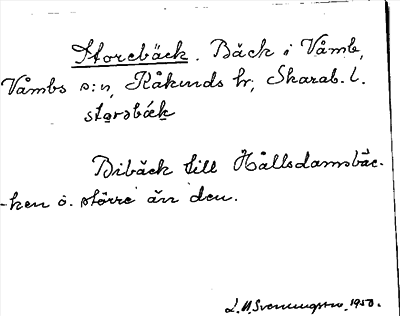 Storebäck. Bäck i Våmb,
Våmbs s:n, Kåkinds hr, Skarab. l.
storəbäk
Bibäck till Hållsdammsbäc-
-ken o. större än den.
L. M. Svenungsson, 1950.